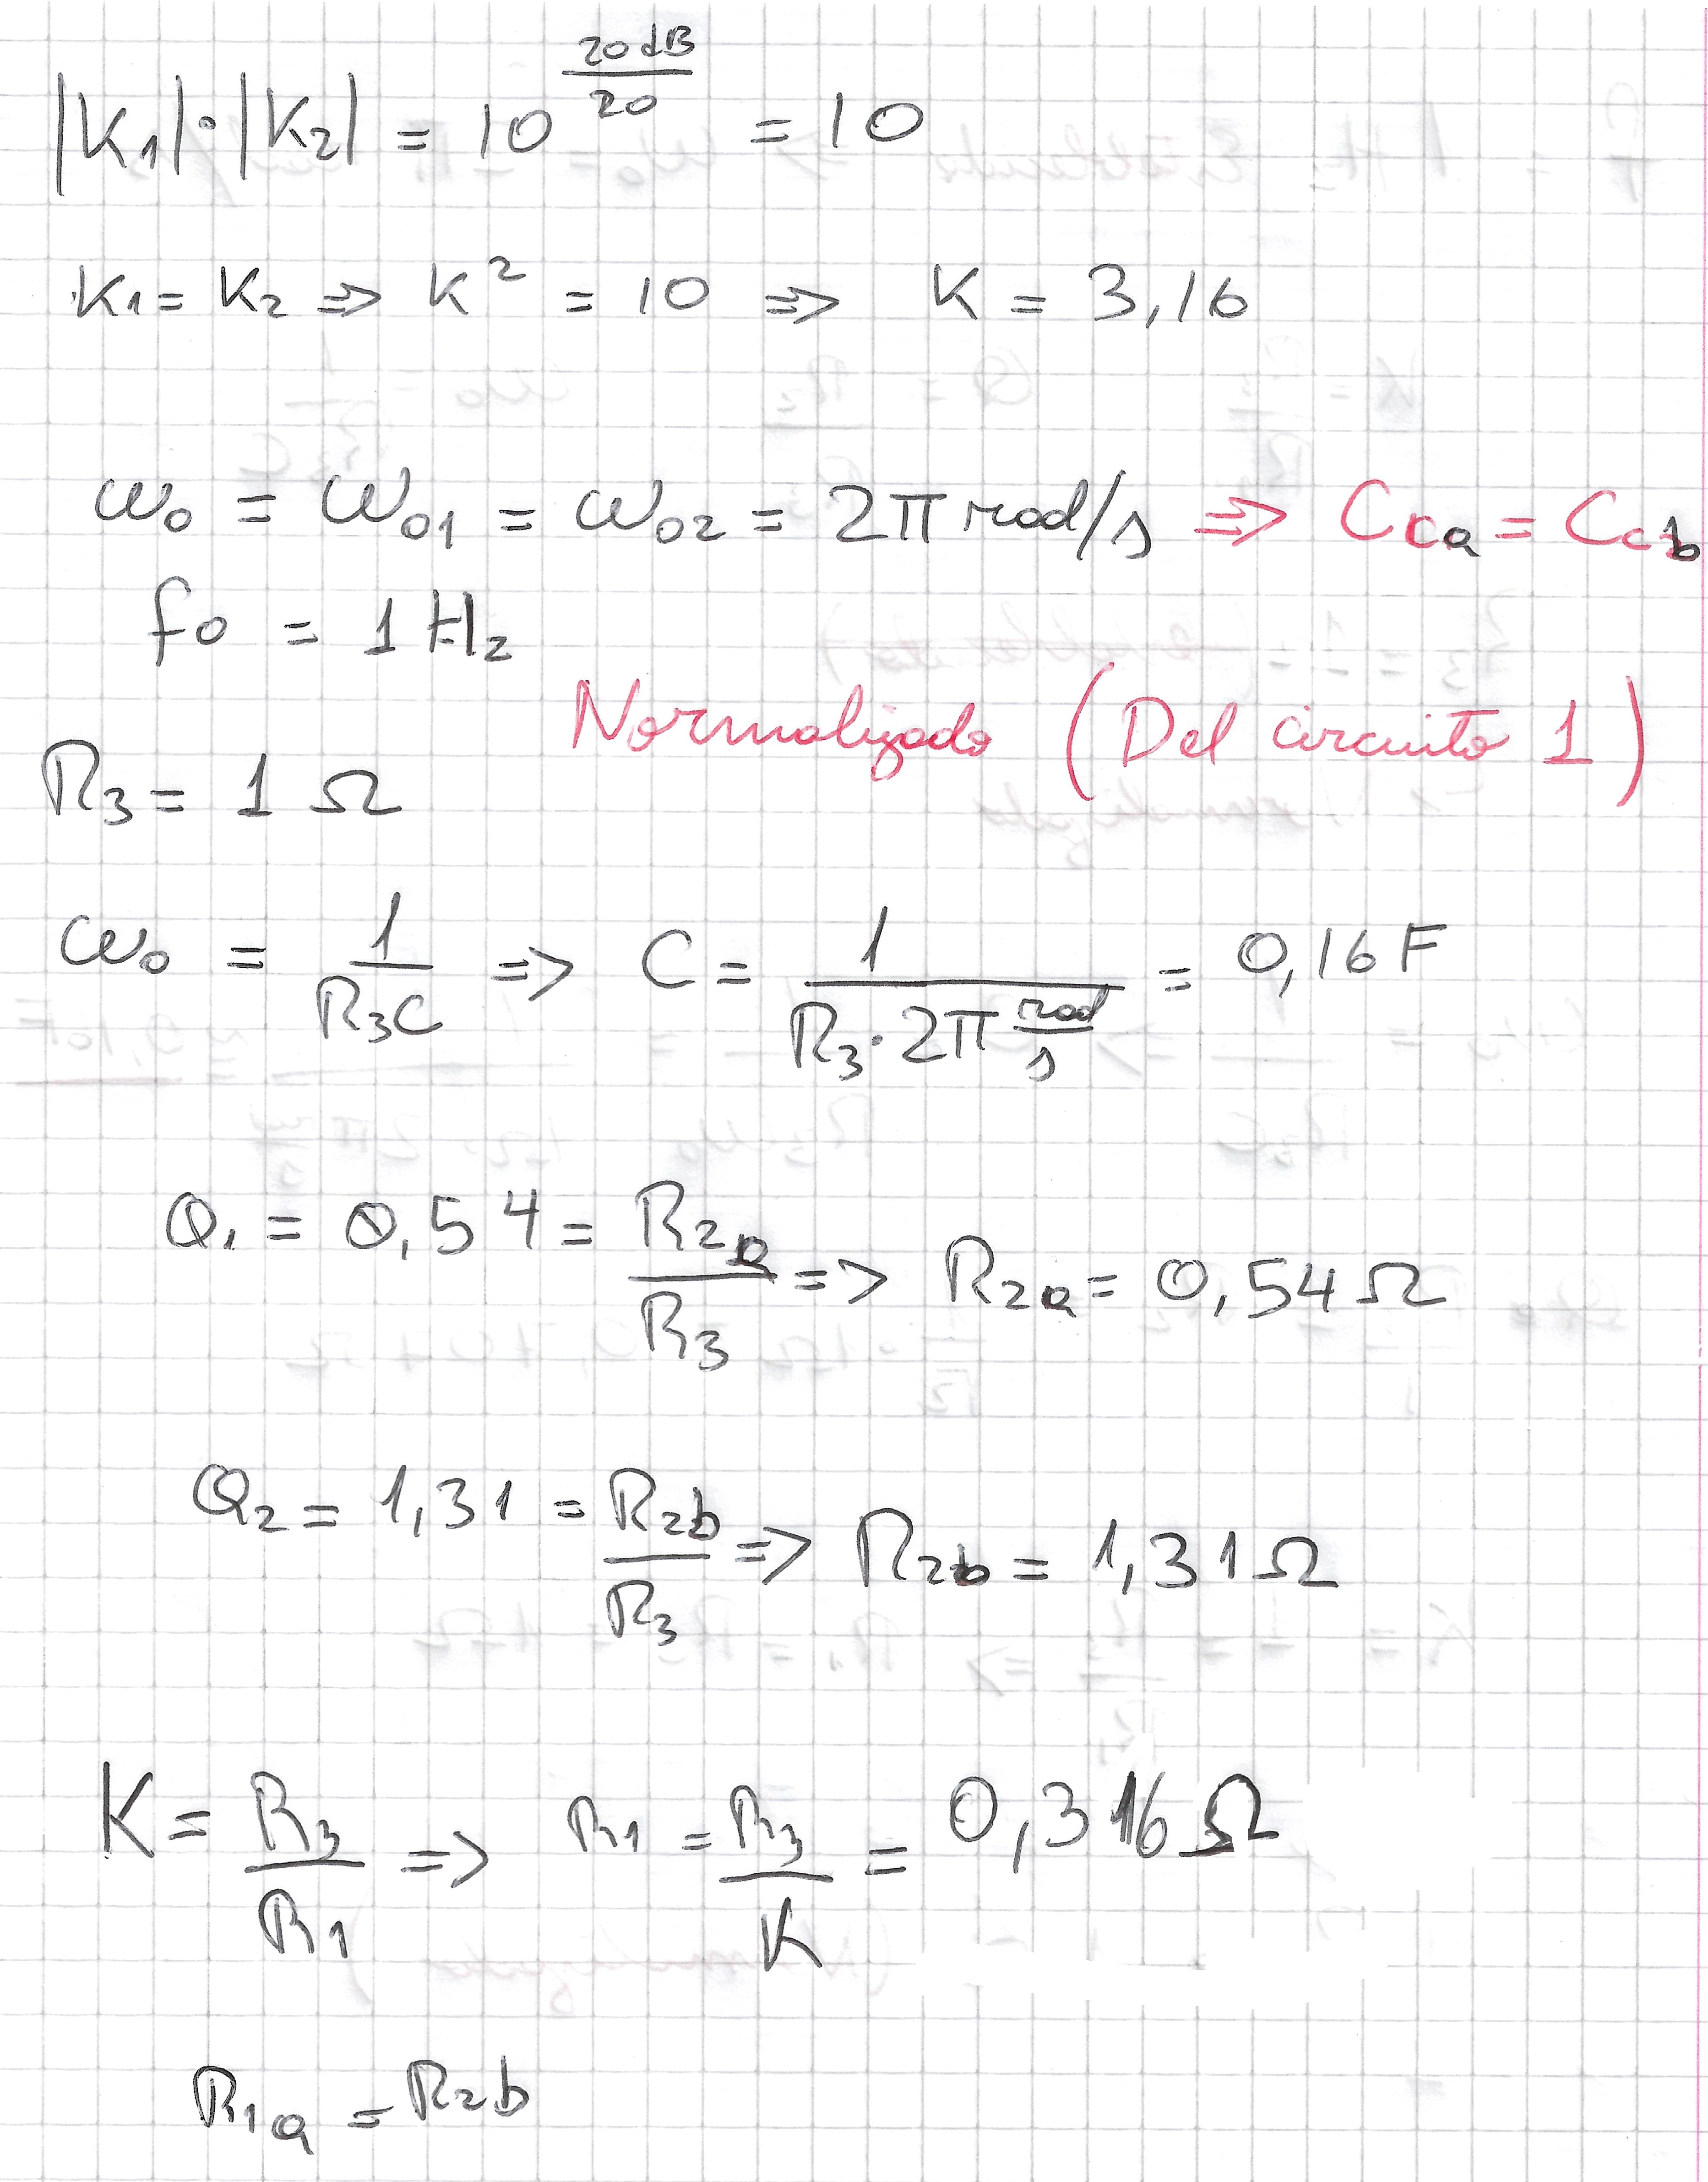 |K₁|·|K₂| = 10^(20dB/20) = 10
K₁ = K₂ => K² = 10 => K = 3,16
ω₀ = ω₀₁ = ω₀₂ = 2π rad/s => C_ca = C_cb
f₀ = 1 Hz
Normalizado (Del circuito 1)
R₃ = 1 Ω
ω₀ = 1/(R₃C) => C = 1/(R₃·2π rad/s) = 0,16 F
Q₁ = 0,54 = R₂a/R₃ => R₂a = 0,54 Ω
Q₂ = 1,31 = R₂b/R₃ => R₂b = 1,31 Ω
K = R₃/R₁ => R₁ = R₃/K = 0,316 Ω
R₁a = R₂b